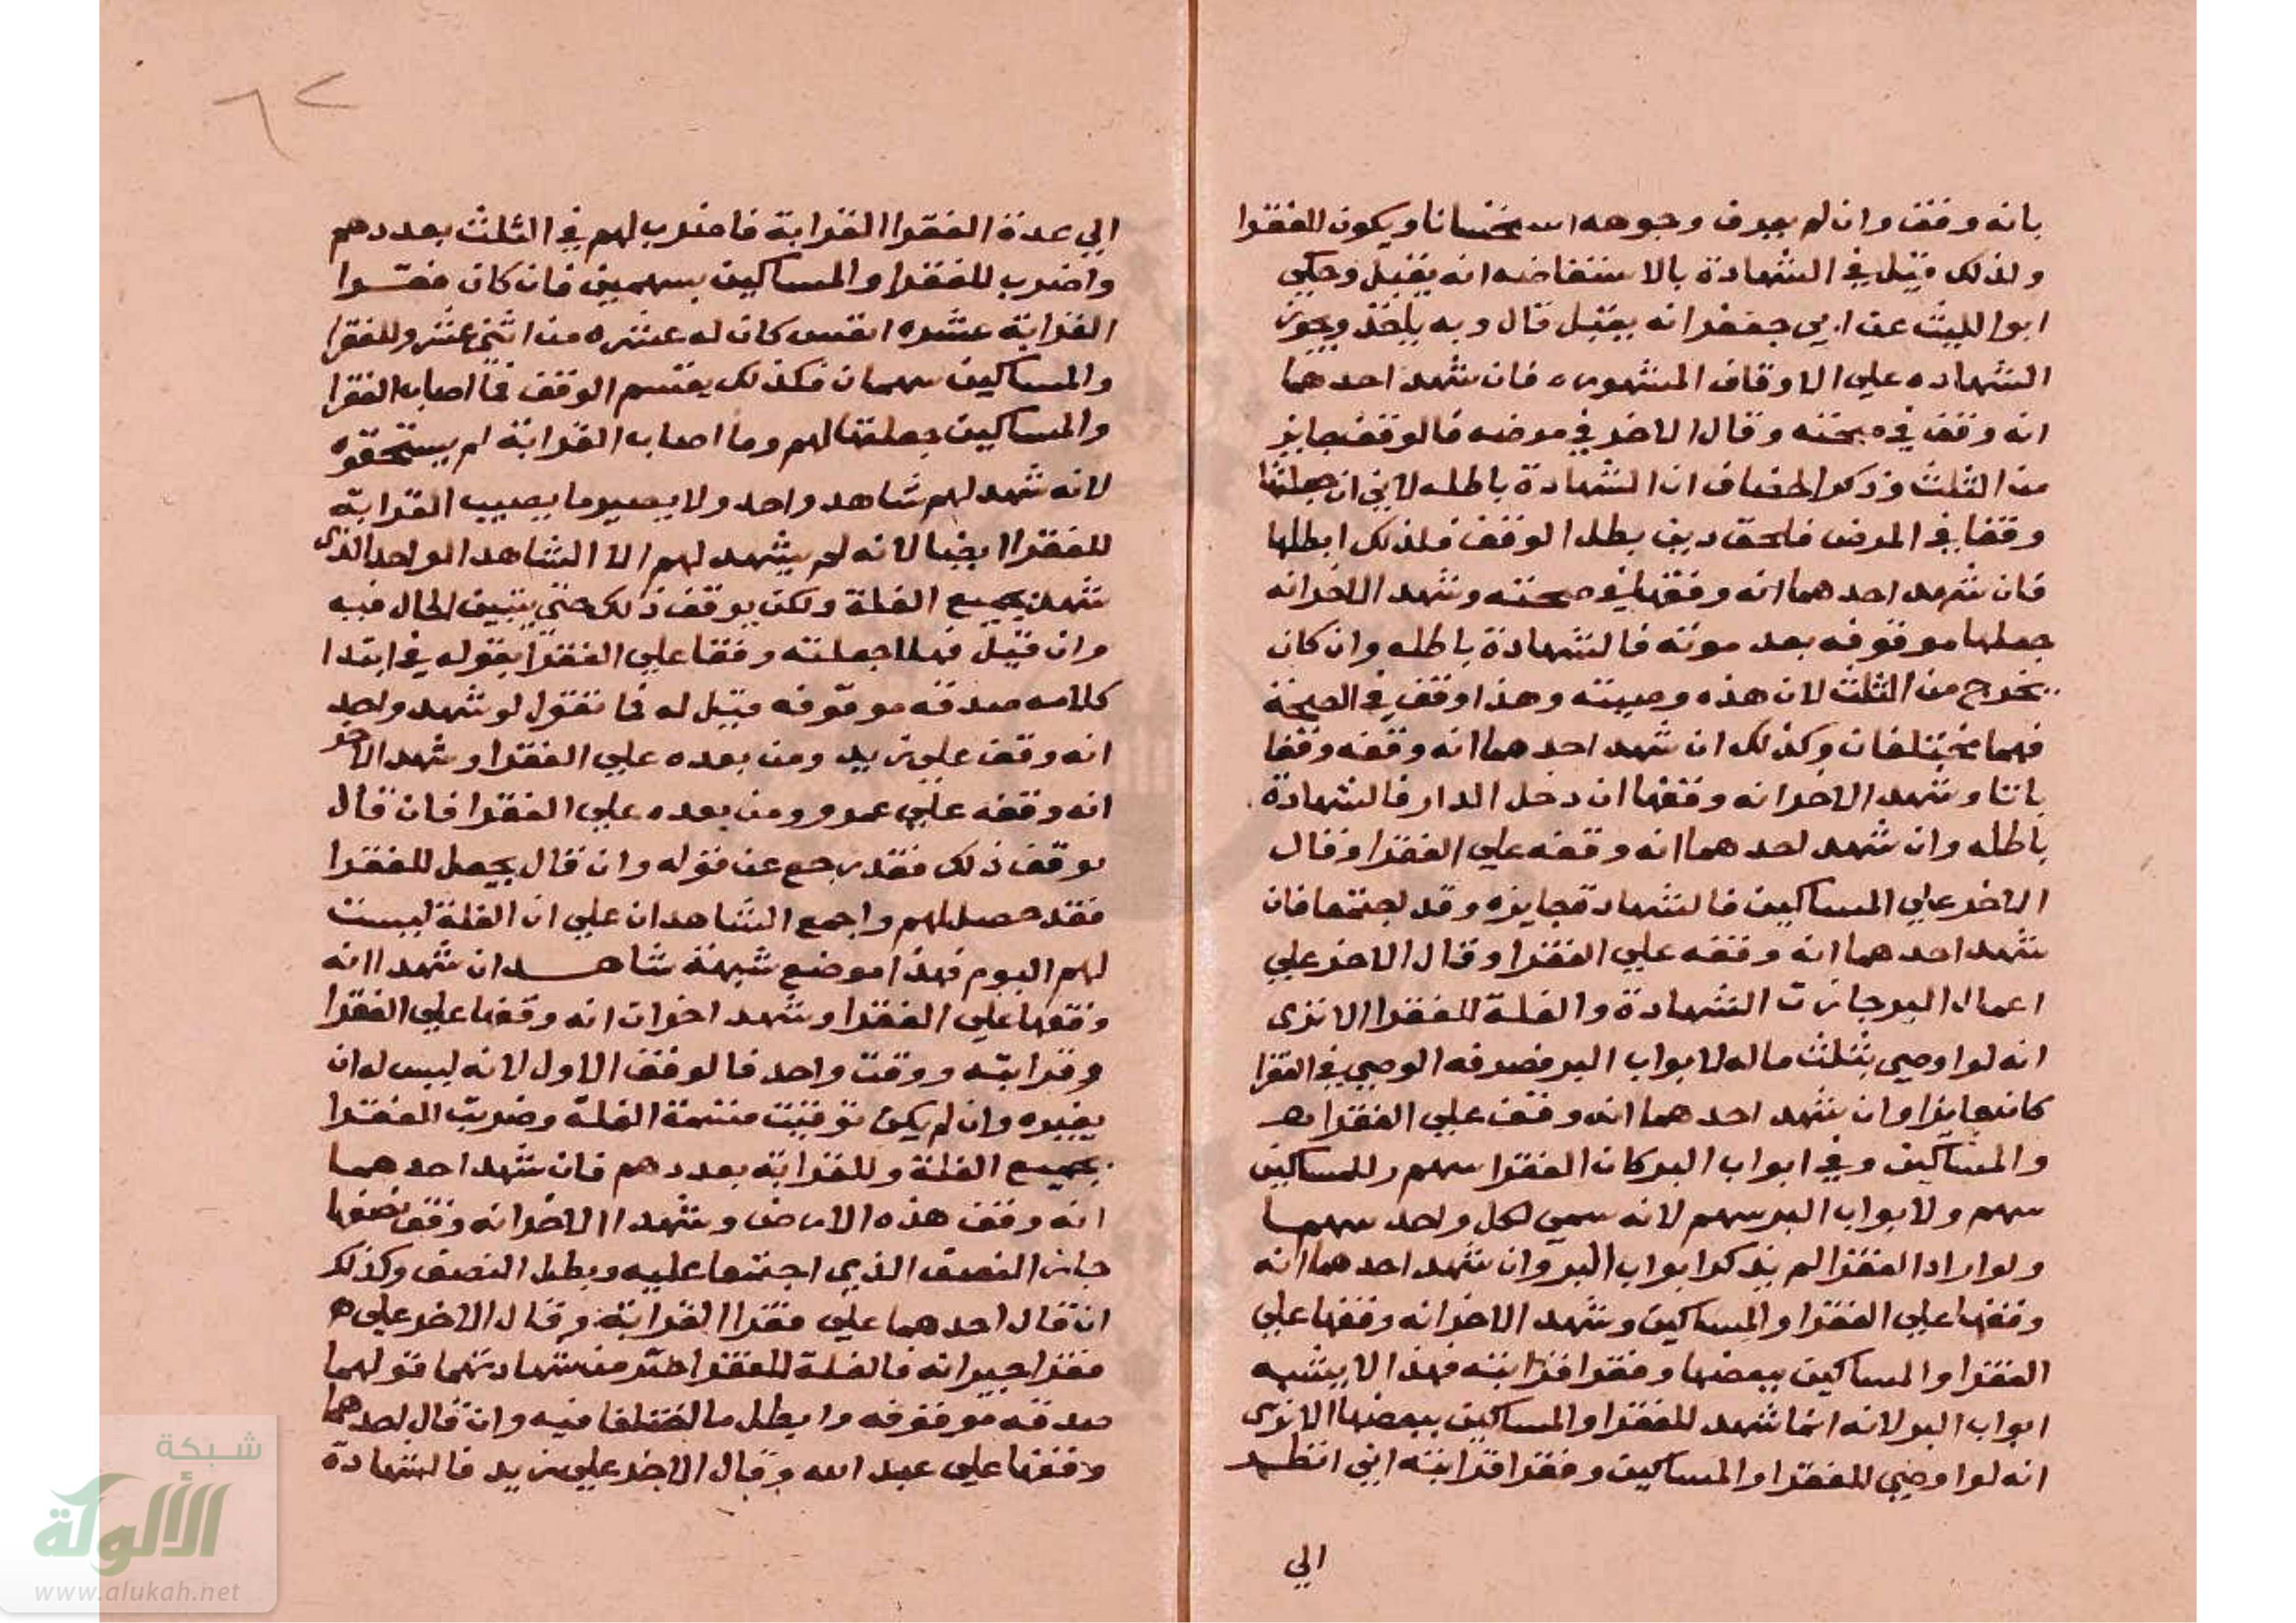 بانه وقف وان لم يعرف وجوهه استحسانا ويكون للفقرا
ولذلك قيل في الشهادة بالاستفاضه انه يقبل وحكي
ابوا الليث عن ابي جعفر انه يقبل قال وبه ياخذ ويجوز
الشهاده علي الاوقاف المشهوره فان شهد احدهما
انه وقف في صحته وقال الاخر في مرضه فالوقف جايز
من الثلث وذكر الخصاف ان الشهادة باطله لاني ان جعلتها
وقفا في المرض فلحق دين بطل الوقف فلذلك ابطلها
فان شهد احدهما انه وقفها في صحته وشهد الاخر انه
جعلها موقوفه بعد موته فالشهادة باطله وان كان
يخرج من الثلث لان هذه وصيته وهذا وقف في الصحة
فهما مختلفان وكذلك ان شهد احدهما انه وقفه وقفا
باتا وشهد الاخر انه وقفها ان دخل الدار فالشهادة
باطله وان شهد احدهما انه وقفه علي الفقرا وقال
الاخر علي المساكين فالشهادة جايزه وقد اجتمعا فان
شهد احدهما انه وقفه علي الفقرا وقال الاخر علي
اعمال البر جازت الشهادة والغلة للفقرا الا تري
انه لو اوصي بثلث ماله لابواب البر فصرفه الوصي في الفقرا
كان جايزا وان شهد احدهما انه وقف علي الفقرا
والمساكين وفي ابواب البر كان الفقرا سهم وللمساكين
سهم ولابواب البر سهم لانه سمي لكل واحد سهما
ولو اراد الفقرا لم يذكر ابواب البر وان شهد احدهما انه
وقفها علي الفقرا والمساكين وشهد الاخر انه وقفها علي
الفقرا والمساكين ببعضها وفقرا قرابته فهذا لا يشبه
ابواب البر لانه انما شهد للفقرا والمساكين ببعضها الا تري
انه لو اوصي للفقرا والمساكين وفقرا قرابته اني انظر
الي
الي عدة الفقرا القرابة فاضرب لهم في الثلث بعددهم
واضرب للفقرا والمساكين بسهمين فان كان فقرا
القرابة عشره انفس كان له عشره من اثني عشر وللفقرا
والمساكين سهمان فكذلك يقسم الوقف فما اصاب الفقرا
والمساكين جعلتها لهم وما اصاب القرابة لم يستحقوه
لانه شهد لهم شاهد واحد ولا يصير ما يصيب القرابة
للفقرا ايضا لانه لم يشهد لهم الا الشاهد الواحد الذي
شهد بجميع الغلة ولكن يوقف ذلك حتي يتبين الحال فيه
وان قيل فهلا جعلته وقفا علي الفقرا بقوله في ابتدا
كلامه صدقه موقوفه قيل له فما تقول لو شهد واحد
انه وقف علي زيد ومن بعده علي الفقرا وشهد الاخر
انه وقفه علي عمرو ومن بعده علي الفقرا فان قال
يوقف ذلك فقد رجع عن قوله وان قال يجعل للفقرا
فقد حصل لهم واجمع الشاهدان علي ان الغلة ليست
لهم اليوم فهذا موضع شبهة شاهدان شهدا انه
وقفها علي الفقرا وشهد اخران انه وقفها علي الفقرا
وقرابته ووقت واحد فالوقف الاول لانه ليس له ان
يغيره وان لم يكن توقيت قسمة الغلة وضربت للفقرا
بجميع الغلة وللقرابة بعددهم فان شهد احدهما
انه وقف هذه الارض وشهد الاخر انه وقف نصفها
جاز النصف الذي اجتمعا عليه وبطل النصف وكذلك
ان قال احدهما علي فقرا القرابة وقال الاخر علي
فقرا جيرانه فالغلة للفقرا من شهادتهما قولهما
صدقه موقوفه وابطل ما اختلفا فيه وان قال احدهما
وقفها علي عبد الله وقال الاخر علي زيد فالشهادة
شبكة
الألوكة
www.alukah.net